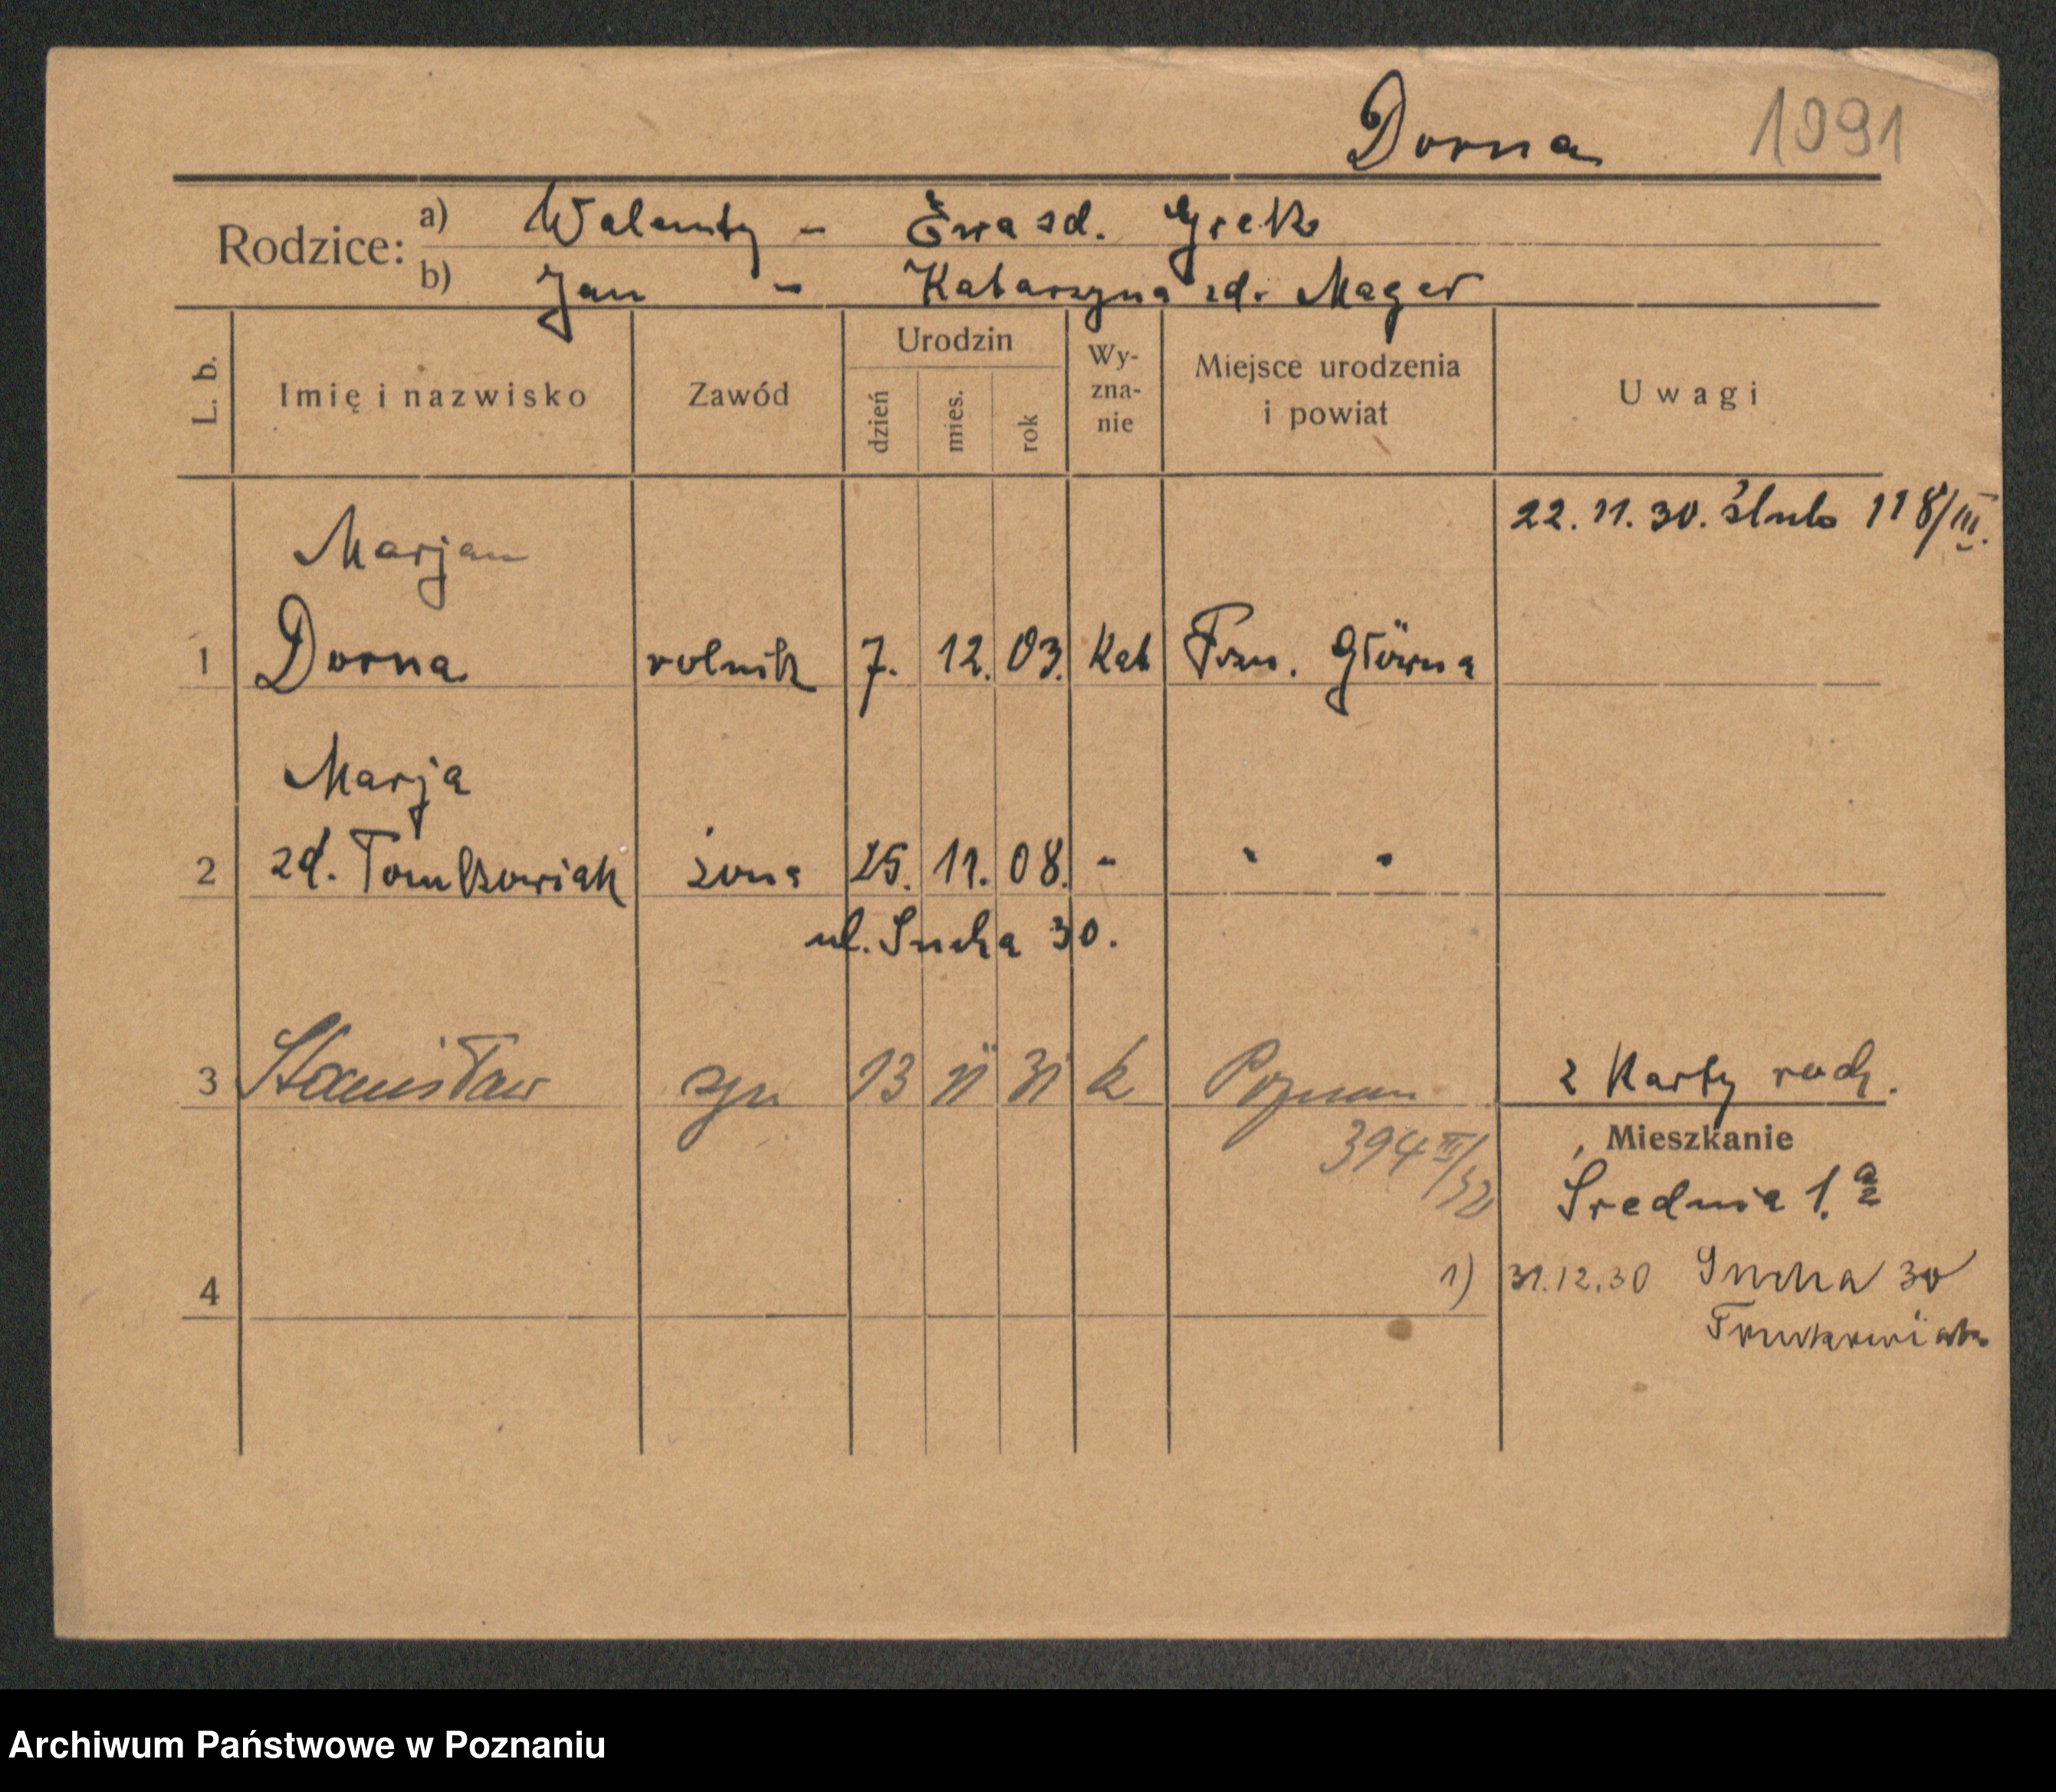 Dorna 1091
Rodzice: a) Walenty - Ewa zd. Grek
b) Jan - Katarzyna zd. Mager
L. b. Imię i nazwisko Zawód Urodzin dzień mies. rok Wy-zna-nie Miejsce urodzenia i powiat Uwagi
22. 11. 30. ślub 118/III.
Marjan
1 Dorna rolnik 7. 12. 03. Kat Pozn. Główna
Marja
2 zd. Tomkowiak żona 25. 11. 08. - " "
ul. Sucha 30.
3 Stanisław syn 13 11 31 k Poznań 2 Karty rodz.
394 III/32
Mieszkanie
Średnia 1.a
4 1) 31.12.30 Sucha 30